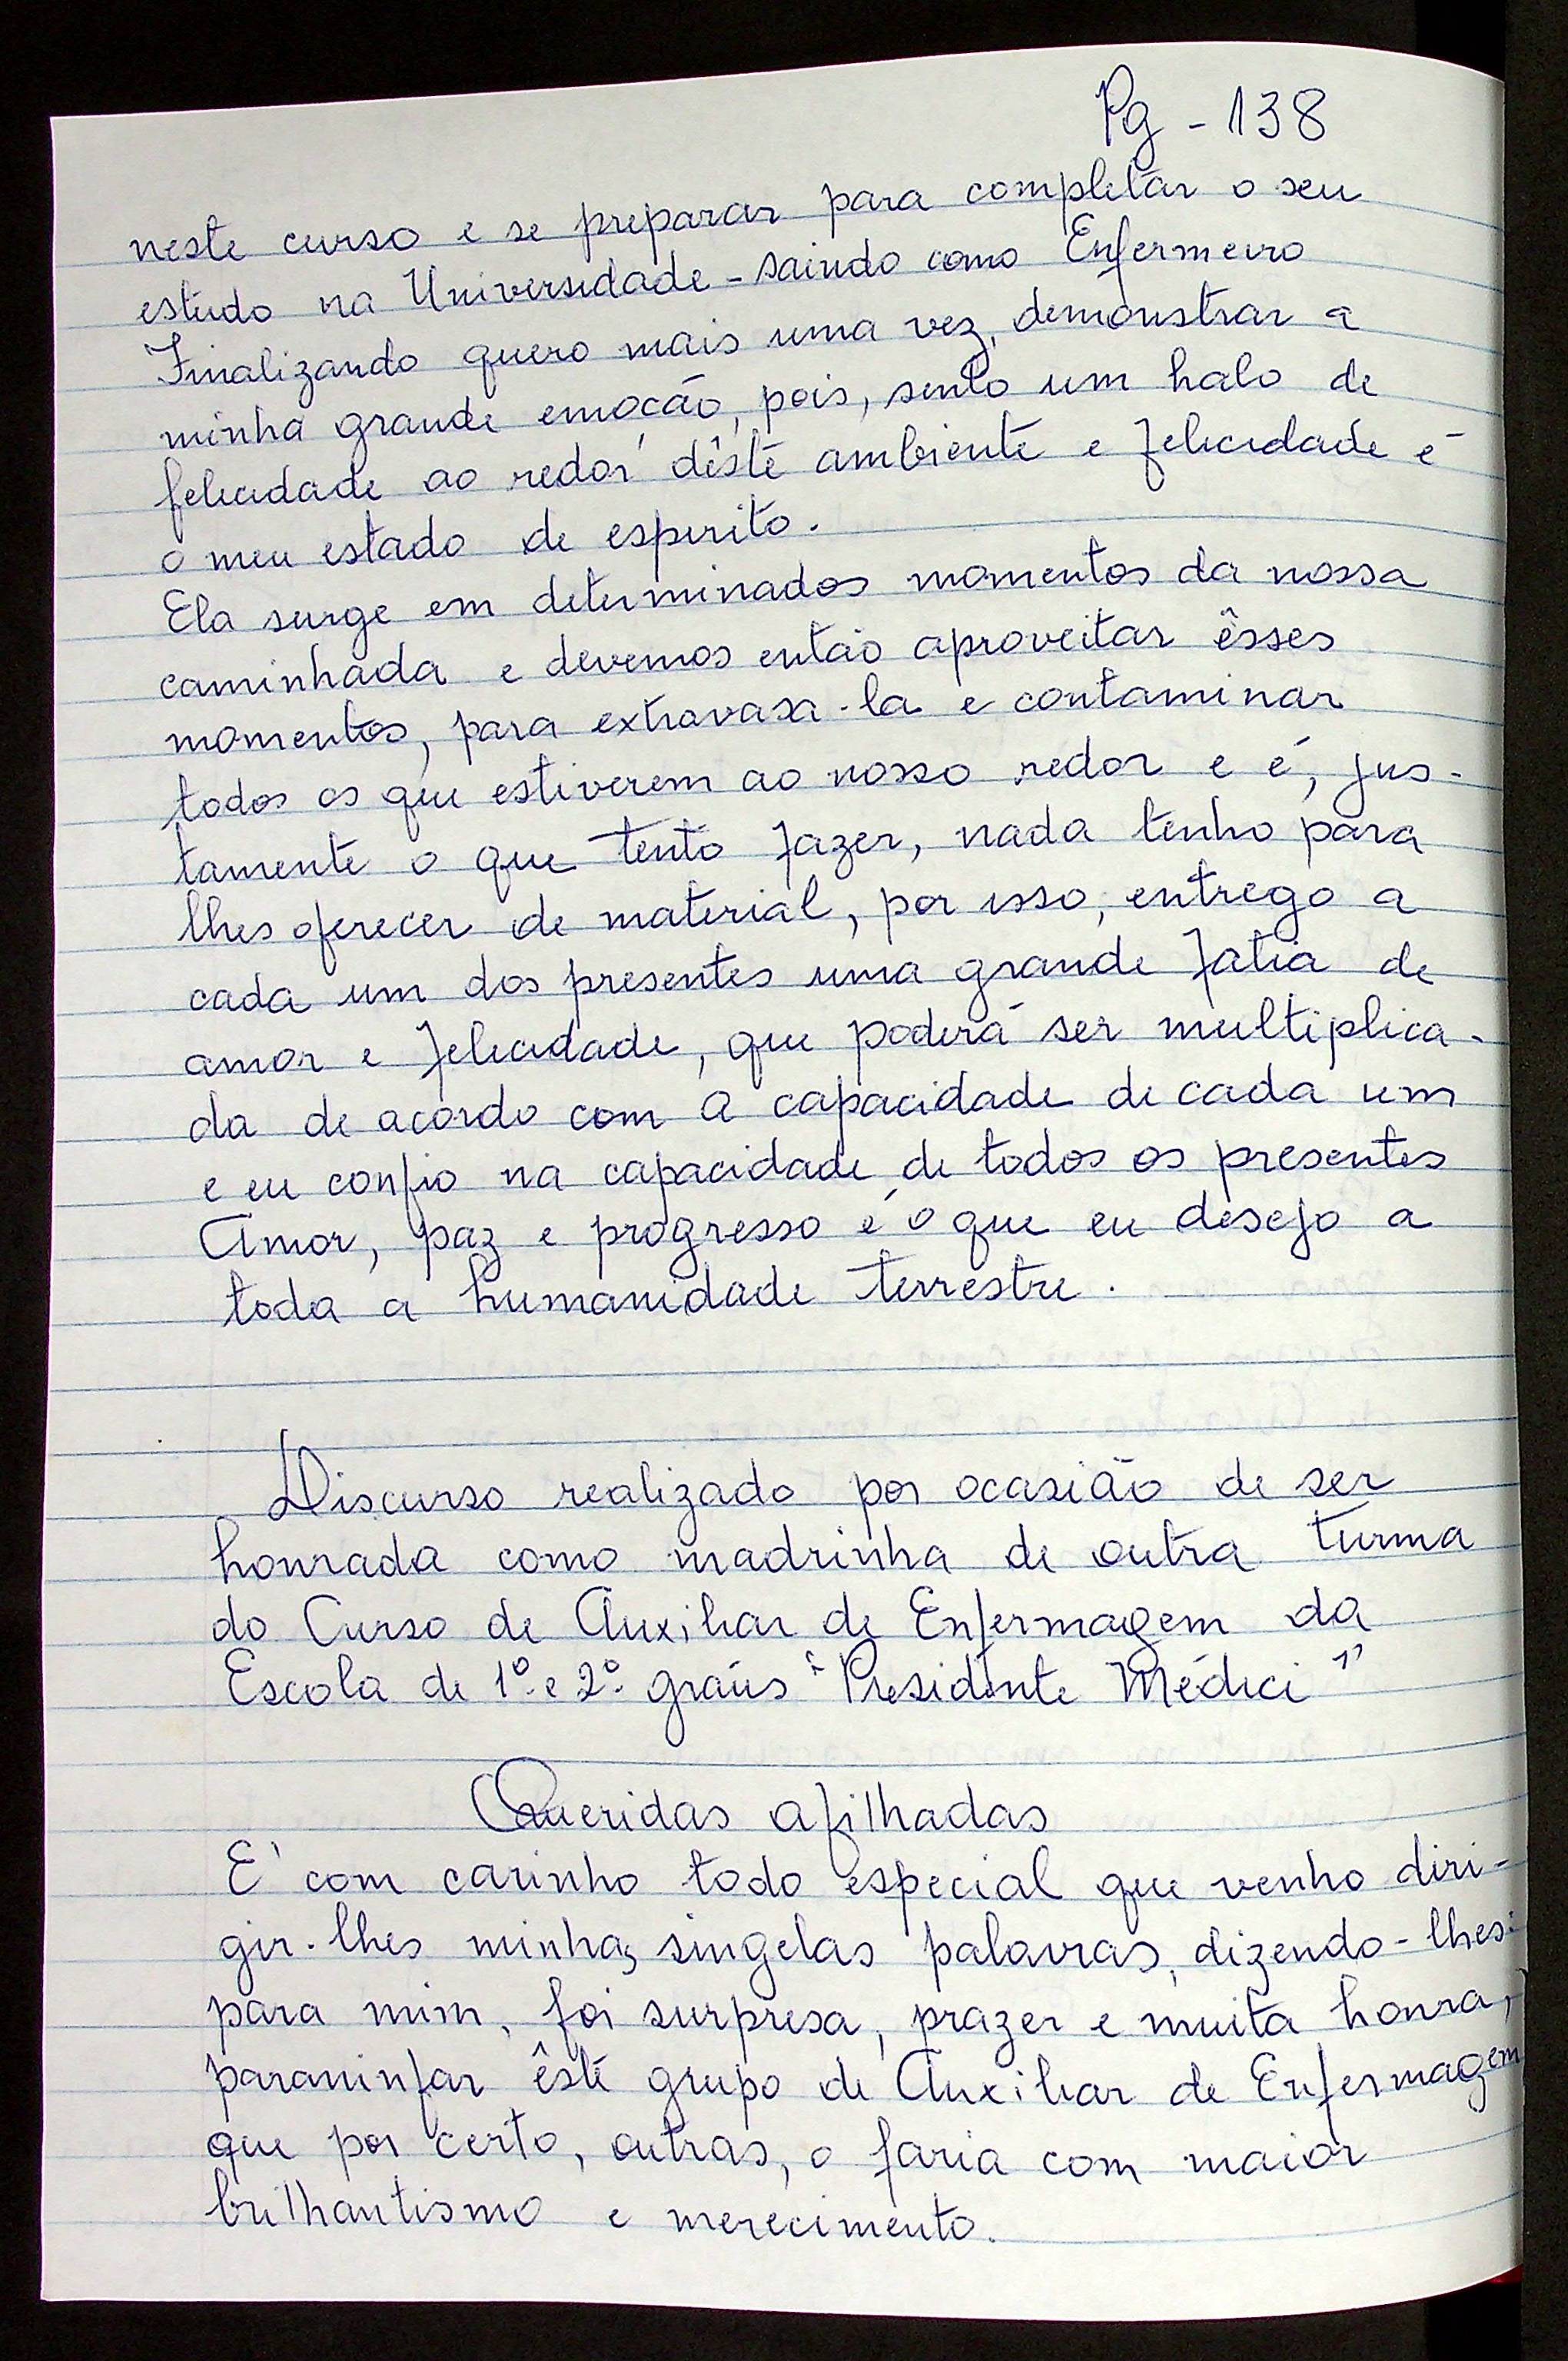 Pg - 138
neste curso e se preparar para completar o seu
estudo na Universidade - saindo como Enfermeiro
Finalizando quero mais uma vez, demonstrar a
minha grande emoção, pois, sento um halo de
felicidade ao redor dêste ambiente e felicidade é
o meu estado de espirito.
Ela surge em determinados momentos da nossa
caminhada e devemos então aproveitar êsses
momentos, para extravasa-la e contaminar
todos os que estiverem ao nosso redor e é, jus-
tamente o que tento fazer, nada tenho para
lhes oferecer de material, por isso, entrego a
cada um dos presentes uma grande fatia de
amor e felicidade, que poderá ser multiplica-
da de acordo com a capacidade de cada um
e eu confio na capacidade de todos os presentes
Amor, paz e progresso é o que eu desejo a
toda a humanidade terrestre.
Discurso realizado por ocasião de ser
honrada como madrinha de outra turma
do Curso de Auxiliar de Enfermagem da
Escola de 1º e 2º graús "Presidente Médici"
Queridas afilhadas
E' com carinho todo especial que venho diri-
gir-lhes minhas singelas palavras, dizendo-lhes:
para mim, foi surpresa, prazer e muita honra,
paraninfar êste grupo de Auxiliar de Enfermagem
que por certo, outras, o faria com maior
brilhantismo e merecimento.